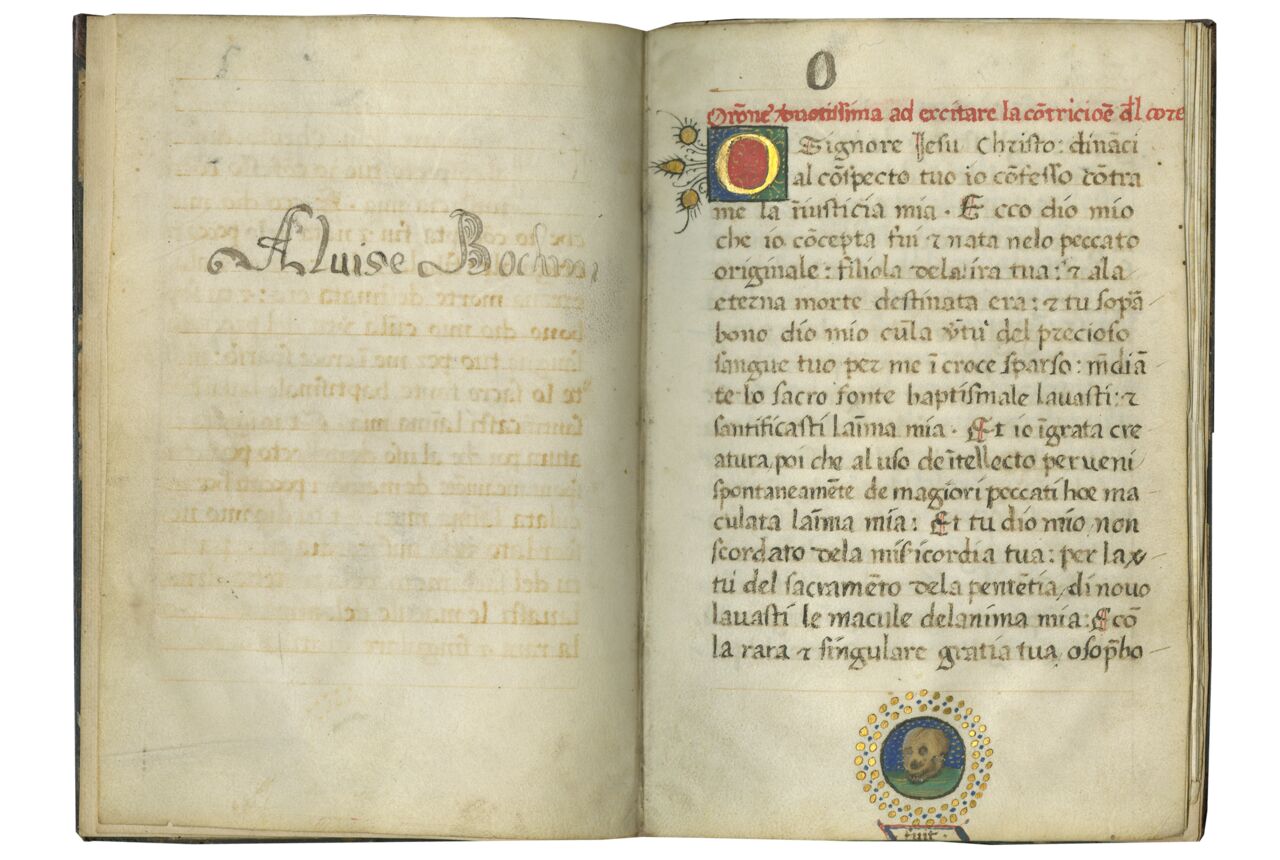 Aluise Bochin
O
Orõne deuotissima ad excitare la cõtricioẽ dl core
O Signore Jesu Christo: dinãci
al cõspecto tuo io cõfesso cõtra
me la ĩiusticia mia. Ecco dio mio
che io cõcepta fui ⁊ nata nelo peccato
originale: filiola dela ira tua: ⁊ ala
eterna morte destinata era: ⁊ tu sop̃a
bono dio mio cũla ṽtu del precioso
sangue tuo per me ĩ croce sparso: m̃diã
te lo sacro fonte baptismale lauasti: ⁊
santificasti lañma mia. Et io ĩgrata cre
atura, poi che al uso de ĩtellecto perueni
spontaneamẽte de magiori peccati hoe ma
culata lañma mia: Et tu dio mio non
scordato dela misericordia tua: per la x̃
tu del sacramẽto dela penitẽtia, di nouo
lauasti le macule delanima mia: E cõ
la rara ⁊ singulare gratia tua, o sop̃bo